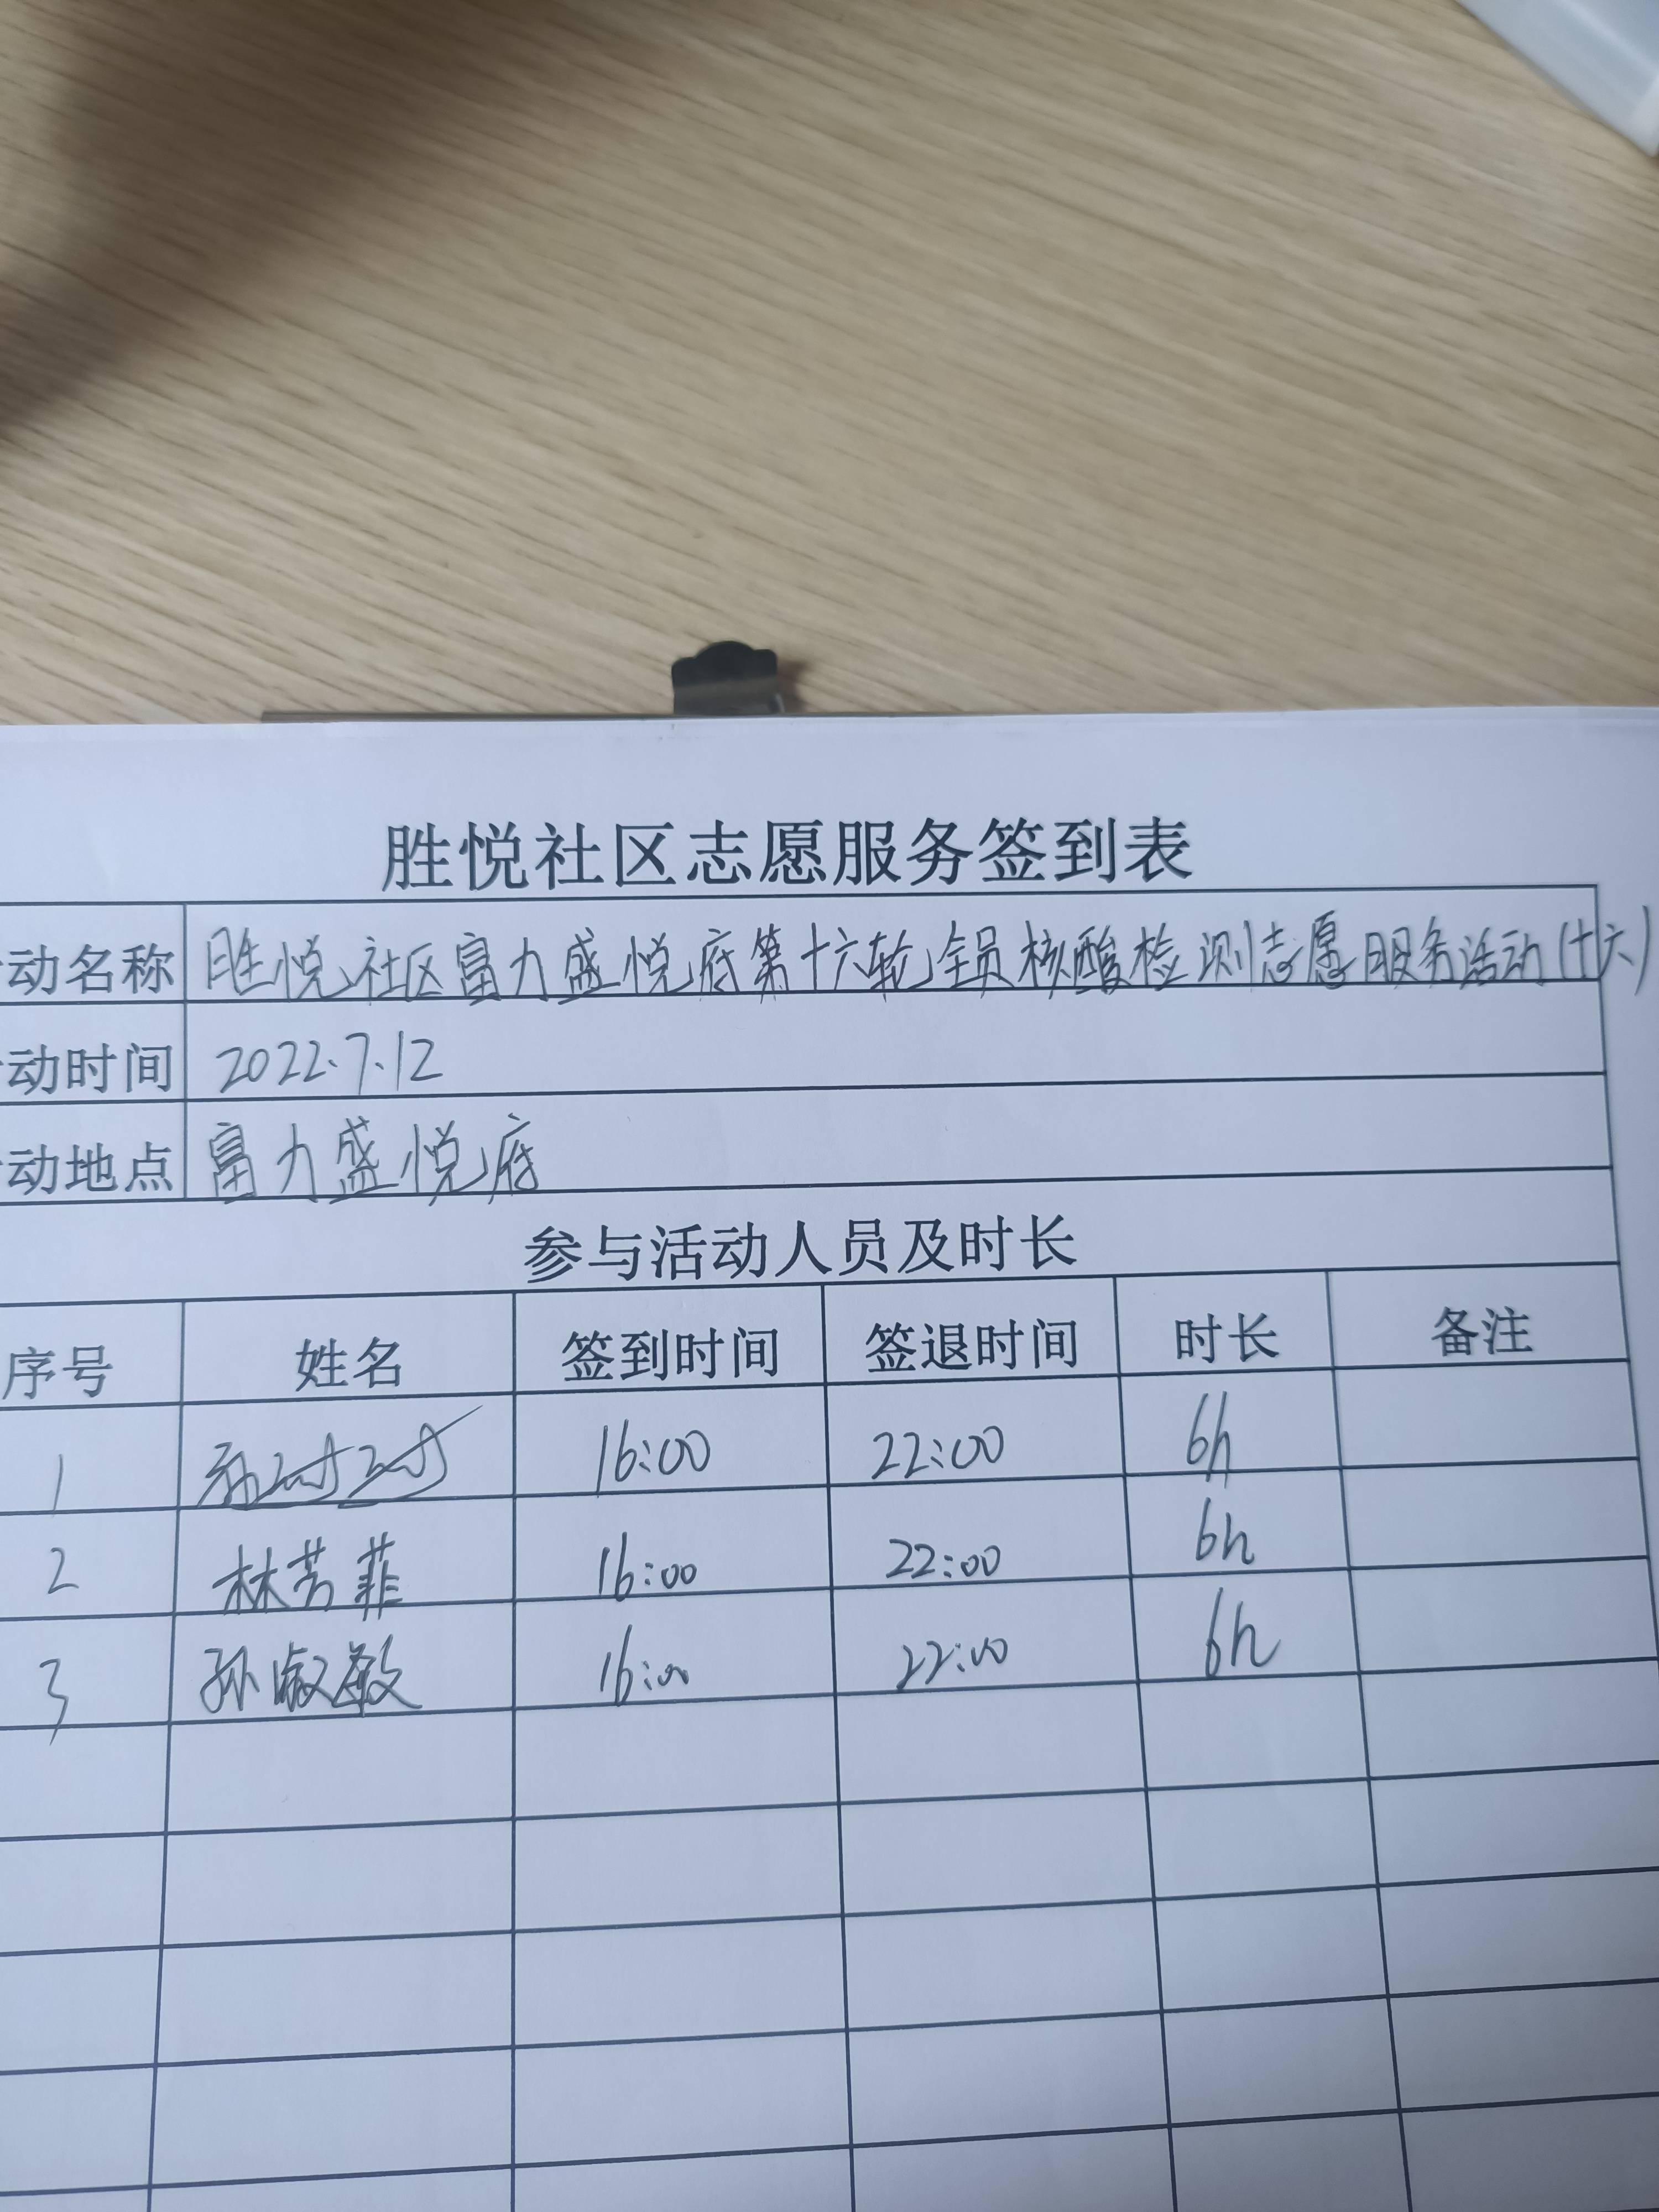 胜悦社区志愿服务签到表
动名称 胜悦社区富力盛悦底第十六轮全员核酸检测志愿服务活动(十六)
动时间 2022.7.12
动地点 富力盛悦底
参与活动人员及时长
序号 姓名 签到时间 签退时间 时长 备注
1 16:00 22:00 6h
2 林芳菲 16:00 22:00 6h
3 孙淑敏 16:00 22:00 6h